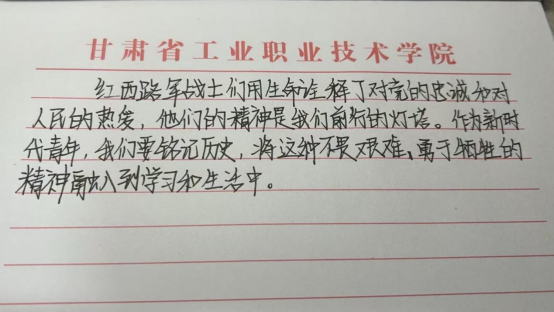 甘肃省工业职业技术学院
红西路军战士们用生命诠释了对党的忠诚和对
人民的热爱，他们的精神是我们前行的灯塔。作为新时
代青年，我们要铭记历史，将这种不畏艰难、勇于牺牲的
精神融入到学习和生活中。